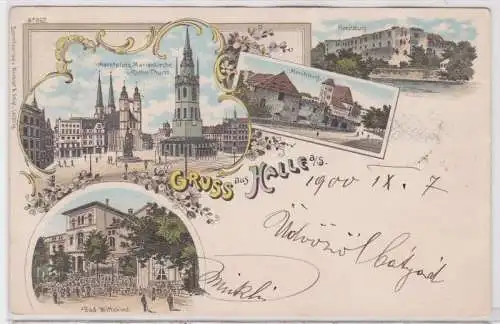 Moritzburg.
Marktplatz, Marienkirche
u. Rother Thurm.
Moritzburg.
GRUSS aus HALLE a/S.
1900 IX. 7
Üdvözöl bátyád
Miklós
Bad Wittekind.